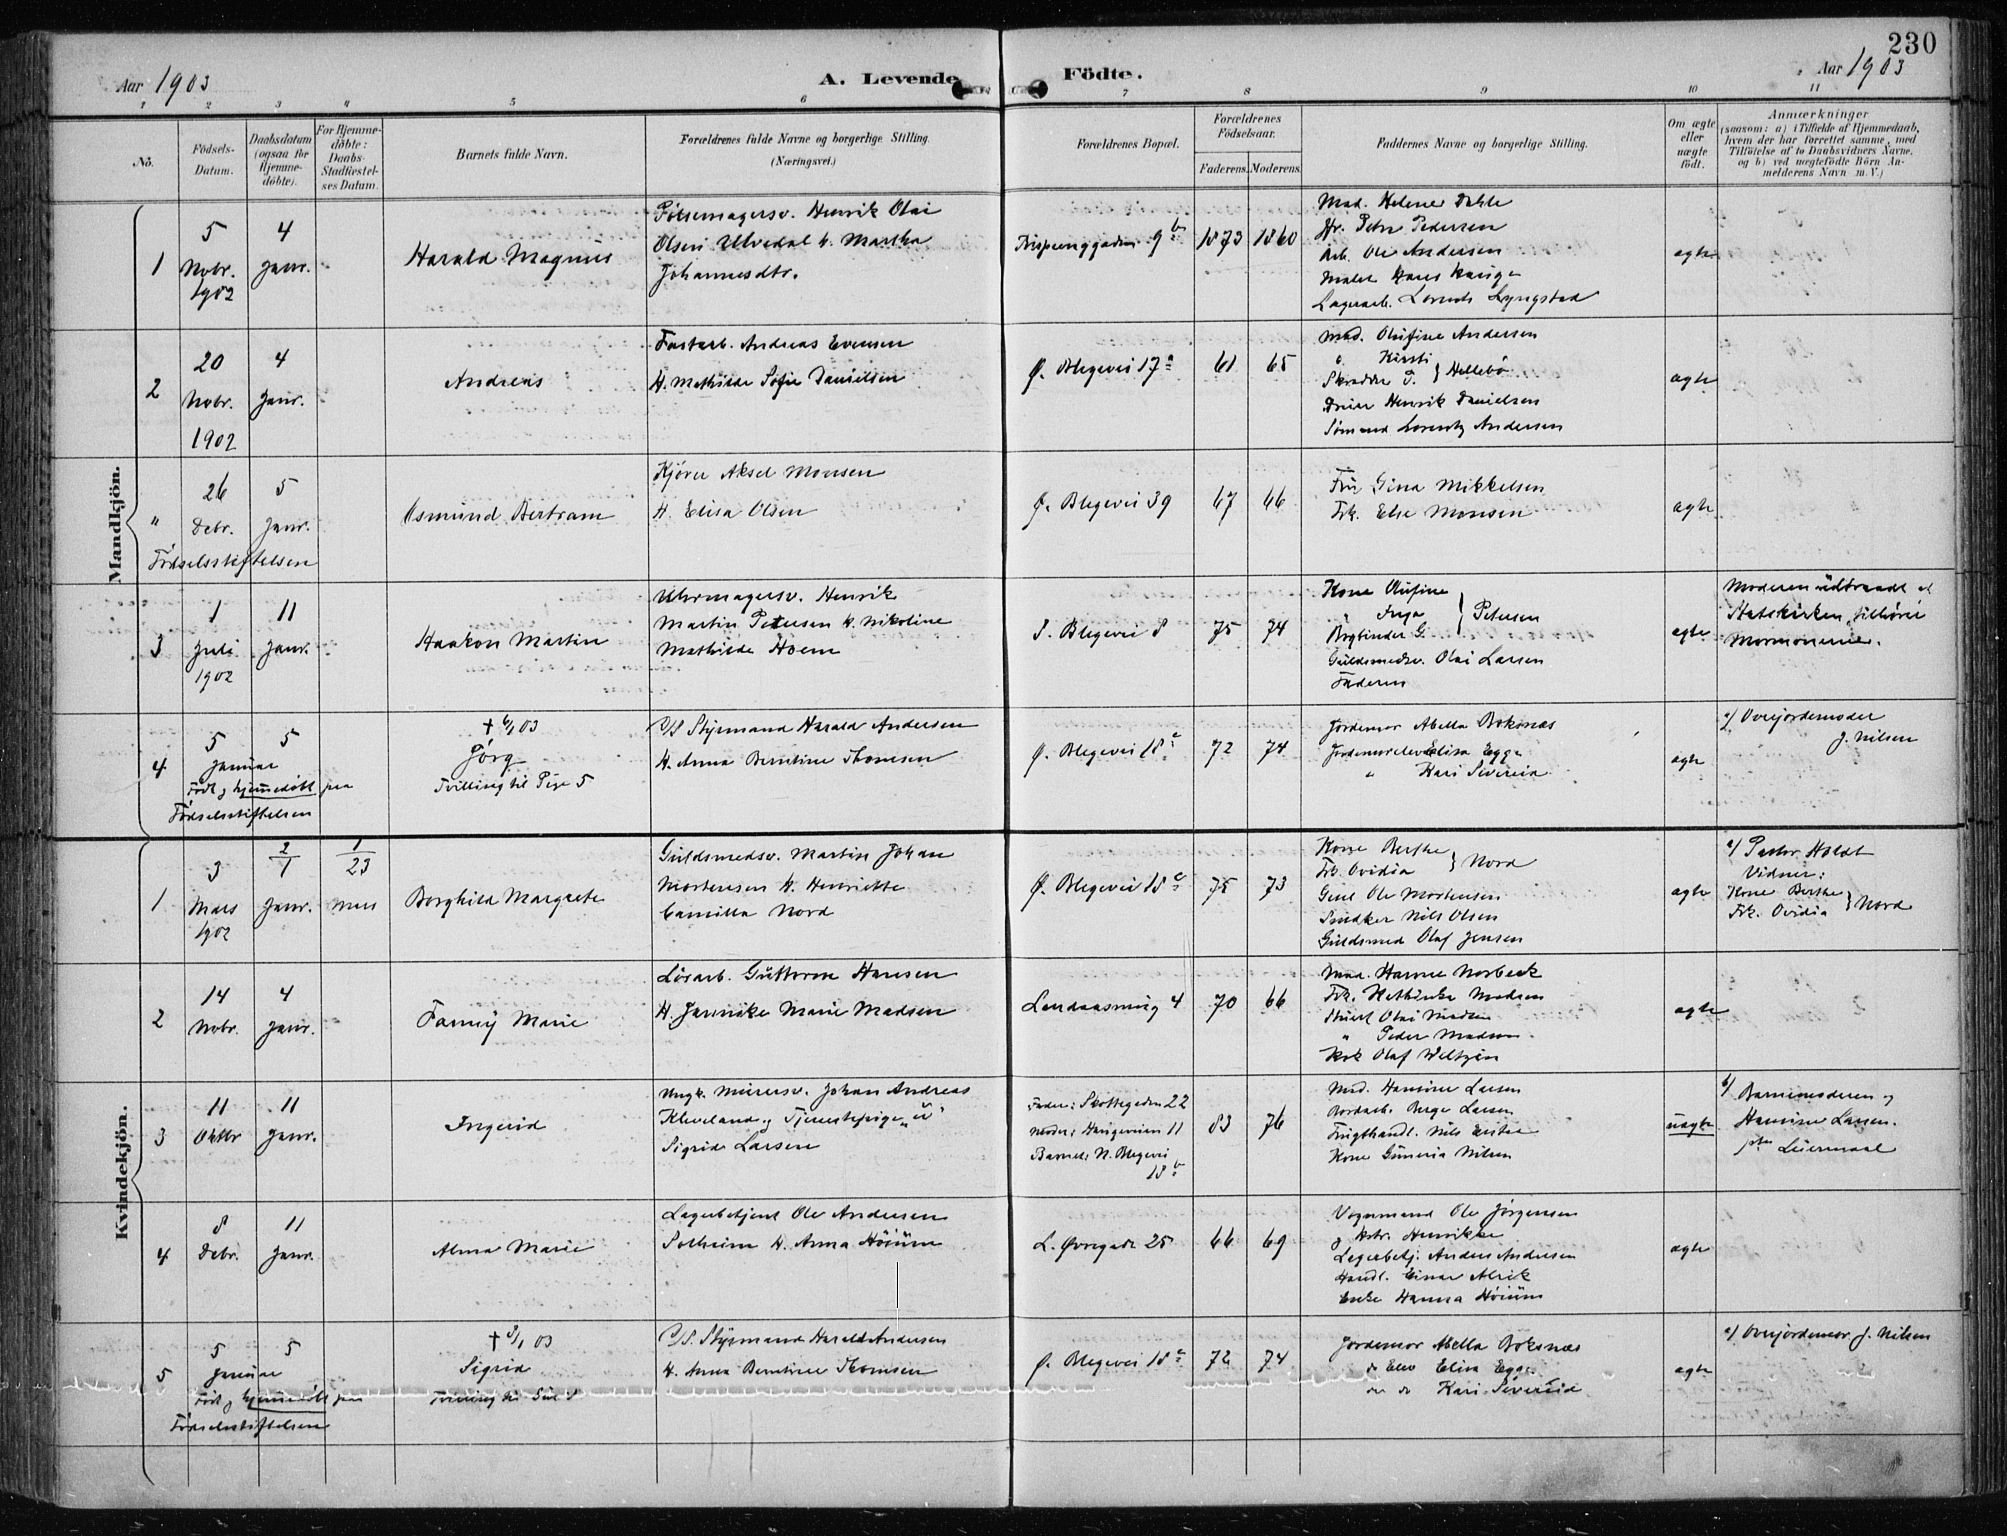 230
Aar 1903
A. Levende Födte.
Aar 1903
1 2 3 4 5 6 7 8 8 9 10 11
No.
Födsels-
Datum.
Daabsdatum
(ogsaa for
Hjemme-
döbte).
For Hjemme-
döbte:
Daabs-
Stadfæstel-
ses Datum.
Barnets fulde Navn.
Forældrenes fulde Navne og borgerlige Stilling.
(Næringsvei.)
Forældrenes Bopæl.
Forældrenes
Födselsaar.
Faderens. Moderens.
Faddernes Navne og borgerlige Stilling.
Om ægte
eller
uægte
födt.
Anmærkninger
(saasom: a) i Tilfælde af Hjemmedaab,
hvem der har forrettet samme, med
Tilföielse af to Daabsvidners Navne,
og b) ved uegtefödte Börn An-
melderens Navn m. V.)
Mandkjön.
1
5
Novbr.
1902
4
Janr.
Harald Magnus
Pølsemagersv. Henrik Olai
Olsen Ulvedal h. Martha
Johannesdtr.
9 b
1873 1860
Mad. Helene Dahle
Hr. Peter Pedersen
Arb. Ole Andersen
Maler Hans Hauge
Lagerarb. Lorentz Lyngstad
ægte
2
20
Novbr.
1902
4
Janr.
Andreas
Fastarb. Andreas Evensen
H. Mathilde Sofie Danielsen
Ø. Blegevei 17 a
61 65
Mad. Olufine Andersen
" Kirsti
Skrædder P. } Hellebø
Dreier Henrik Danielsen
Sømand Lorentz Andersen
ægte
"
26
Debr.
5
Janr.
Fødselsstiftelsen
Osmund Bertram
Kjører Aksel Monsen
H. Elisa Olsen
Ø. Blegevei 39
67 66
Fru Gina Mikkelsen
Frk. Else Monsen
ægte
3
1
Juli
1902
11
Janr.
Haakon Martin
Uhrmagersv. Henrik
Martin Petersen h. Nikoline
Mathilde Hoem
S. Blegevei 8
75 74
Kone Olufine
" Inga
Bogbinder G. } Petersen
Guldsmedsv. Olai Larsen
Faderen
ægte
Moderen udtraadt af
Statskirken, tilhører
Mormonerne.
4
5
Januar
5
Født og hjemmedøbt paa
Fødselsstiftelsen
† 6/1 03
Jörg
Tvilling til Pige 5
D/S Styrmand Harald Andersen
H. Anna Berntine Thomsen
Ø. Blegevei 18 a
72 74
Jordemor Abella Boksnæs
Jordemorelev Elisa Egge
" Kari Sivereid
ægte
a/ Overjordemoder
J. Nilsen
Kvindekjön.
1
3
Mars
1902
2/1
Janr.
1/23
Mars
Borghild Margrete
Guldsmedsv. Martin Johan
Mortensen h. Henriette
Camilla Nord
Ø. Blegevei 18 c
75 73
Kone Berthe
Frk. Ovidia } Nord
Ole Mortensen
Snedker Nils Olsen
Guldsmed Olaf Jensen
ægte
a/ Pastor Holdt
Vidner:
Kone Berthe
Frk. Ovidia } Nord
2
14
Novbr.
4
Janr.
Fanny Marie
Løsarb. Guttorm Hansen
H. Jannike Marie Madsen
4
70 66
Mad. Hanne Norbeck
Frk. Madsen
Olai Madsen
" Peder Madsen
Kok Olaf Weltzin
ægte
3
11
Oktbr
11
Janr.
Ingerid
Ungk. Murersv. Johan Andreas
Kleveland og Tjenestepige "
Sigrid Larsen
Fader: Skottegaden 22
Moder: Haugeveien 11
Barnet: N. Blegevei
18 b
83 76
Mad. Hansine Larsen
Berge Larsen
Frugthandl. Nils
Kone Nilsen
uægte
b/ Barnemoderen og
Hansine Larsen.
Leiermaal
4
8
Debr.
11
Janr.
Alma Marie
Lagerbetjent Ole Andersen
Solheim H. Anna Höium
L. Øvregade 25
66 69
Vognmand Ole Jørgensen
og Henrikke
Lagerbetj. Anders Andersen
Handl. Einar Alvik
Enke Hanna Höium
ægte
5
5
Januar
5
Født og hjemmedøbt paa
Fødselsstiftelsen
03
Sigrid
D/S. Styrmand Harald Andersen
H. Anna Berntine Thomsen
Ø. Blegevei 18 a
72 74
Jordemor Abella Boksnæs
do Elev Elisa Egge
do do Kari Sivereid
ægte
a/ Overjordemor J. Nilsen